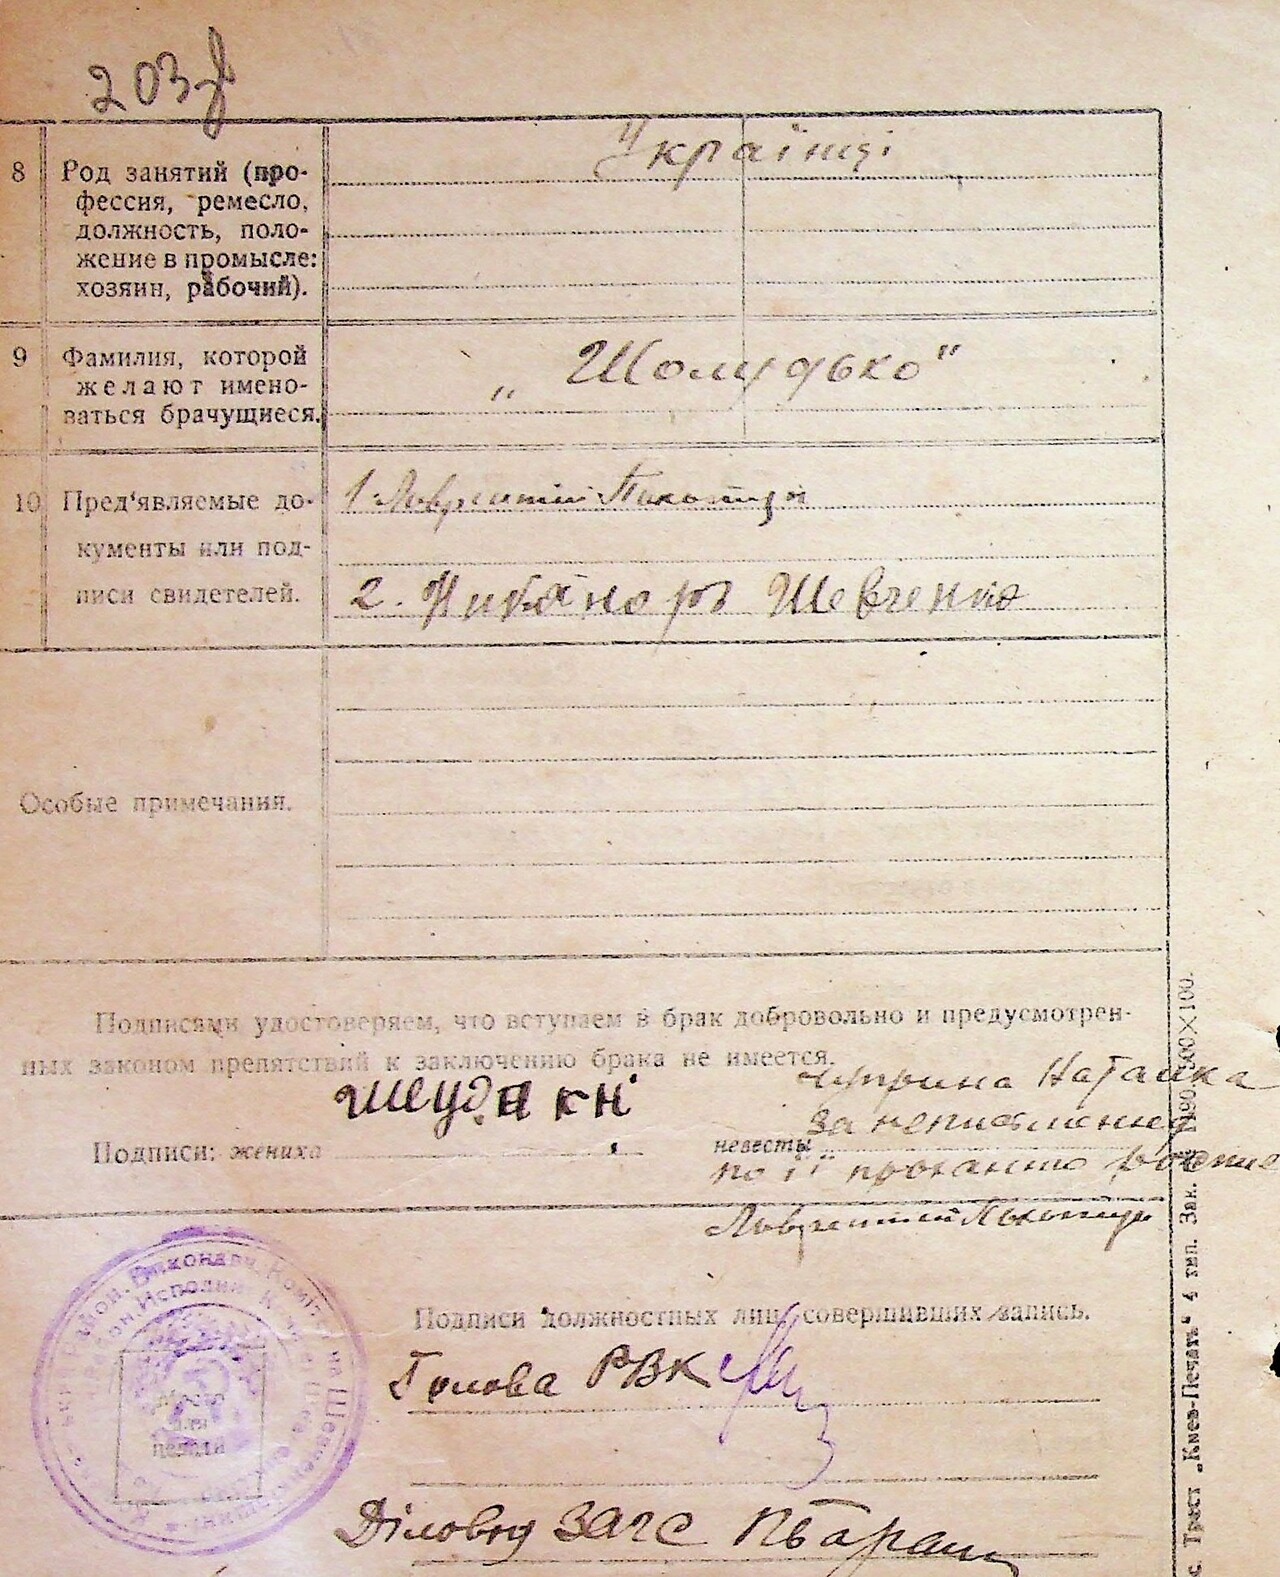 203
Українці
8 Род занятий (про-
фессия, ремесло,
должность, поло-
жение в промысле:
хозяин, рабочий).
9 Фамилия, которой
желают имено-
ваться брачущиеся.
„Шолудько"
10 Пред'являемые до-
кументы или под-
писи свидетелей.
1.
2. Никаноръ Шевченко
Особые примечания.
Подписями удостоверяем, что вступаем в брак добровольно и предусмотрен-
ных законом препятствий к заключению брака не имеется.
Подписи: жениха
невесты
Чуприна Наталка
за неписьменну
по її проханню
Подписи должностных лиц, совершивших запись.
Голова РВК
Діловод ЗАГС
Район. Виконавч. Коміт.
Район. Исполн.
Место
для
печати
Трест „Киев-Печать" 4 тип. Зак. 1190. 500×100.